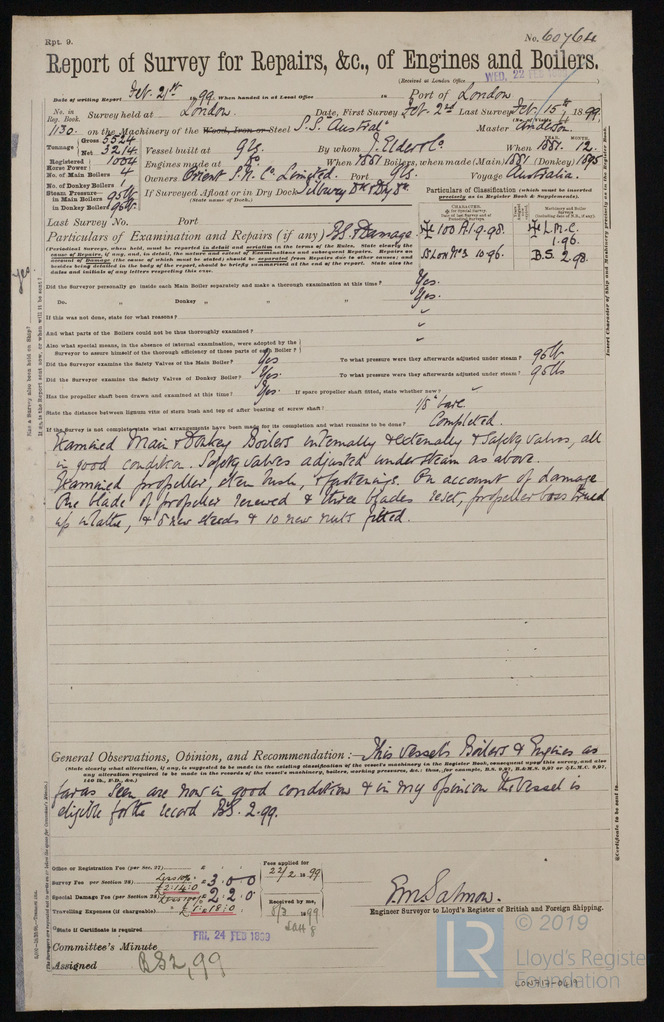 Rpt. 9.
No. 60764
Report of Survey for Repairs, &c., of Engines and Boilers.
(Received at London Office WED. 22 FEB 1899
Date of writing Report Feb. 21st 1899 When handed in at Local Office 18 Port of London
No. in Reg. Book. Survey held at London. Date, First Survey Feb. 2nd Last Survey Feb. 15th 1899
1130 on the Machinery of the Wood, Iron or Steel S.S. Austral Master Anderson
Tonnage Gross 5524 Net 3214 Vessel built at Gls. By whom J. Elder & Co When 1881. 12.
Registered Horse Power 1004 Engines made at Do When 1881 Boilers, when made (Main) 1881 (Donkey) 1895
No. of Main Boilers 4 Owners Orient S.N. Co. Limited. Port Gls. Voyage Australia.
No. of Donkey Boilers 1
Steam Pressure in Main Boilers 95 lb If Surveyed Afloat or in Dry Dock Tilbury Dk & Dry Dk.
(State name of Dock.)
in Donkey Boilers 95 lb.
Particulars of Classification (which must be inserted precisely as in Register Book & Supplements).
Last Survey No. Port
Particulars of Examination and Repairs (if any) B.S. & Damage
100 A1. 9.98. L.M.C. 1.96.
SS Lon No 3 10.96. B.S. 2.98.
Did the Surveyor personally go inside each Main Boiler separately and make a thorough examination at this time? Yes.
Do. " Donkey " " " Yes.
If this was not done, state for what reasons? "
And what parts of the Boilers could not be thoroughly examined? "
Also what special means, in the absence of internal examination, were adopted by the Surveyor to assure himself of the thorough efficiency of those parts of each Boiler? "
Did the Surveyor examine the Safety Valves of the Main Boiler? Yes To what pressure were they afterwards adjusted under steam? 95 lb
Did the Surveyor examine the Safety Valves of Donkey Boiler? Yes. To what pressure were they afterwards adjusted under steam? 95 lbs
Has the propeller shaft been drawn and examined at this time? Yes. If spare propeller shaft fitted, state whether new? "
State the distance between lignum vitæ of stern bush and top of after bearing of screw shaft? 1/8" bare
If the Survey is not complete state what arrangements have been made for its completion and what remains to be done? Completed.
Examined Main & Donkey Boilers internally & externally & Safety valves, all
in good condition. Safety valves adjusted under steam as above.
Examined propeller, stern bush, & fastenings. On account of damage
One blade of propeller renewed & three blades reset, propeller boss trued
up in lathe, & 5 new studs & 10 new nuts fitted.
General Observations, Opinion, and Recommendation:— This vessel's Boilers & Engines as
(State clearly what alteration, if any, is suggested to be made in the existing classification of the vessel's machinery in the Register Book, consequent upon this survey, and also
any alteration required to be made in the records of the vessel's machinery, boilers, working pressures, &c.: thus, for example, B.S. 9,97, B.&M.S. 9,97 or L.M.C. 9,97,
140 lb., F.D., &c.)
far as seen are now in good condition & in my opinion the vessel is
eligible for the record B.S. 2.99.
Office or Registration Fee (per Sec. 27) £
Survey Fee (per Section 28) Less 10% £2:14:0 £3.0.0
Special Damage Fee (per Section 28) Less 10% £1:18:0 £2.2.0
Travelling Expenses (if chargeable) £
Fees applied for 22/2 1899
Received by me, 8/3 1899
State if Certificate is required
E.M. Salmon.
Engineer Surveyor to Lloyd's Register of British and Foreign Shipping.
Committee's Minute FRI. 24 FEB 1899
Assigned B.S 2,99
© 2019
LR
Lloyd's Register
Foundation
LON717-0619